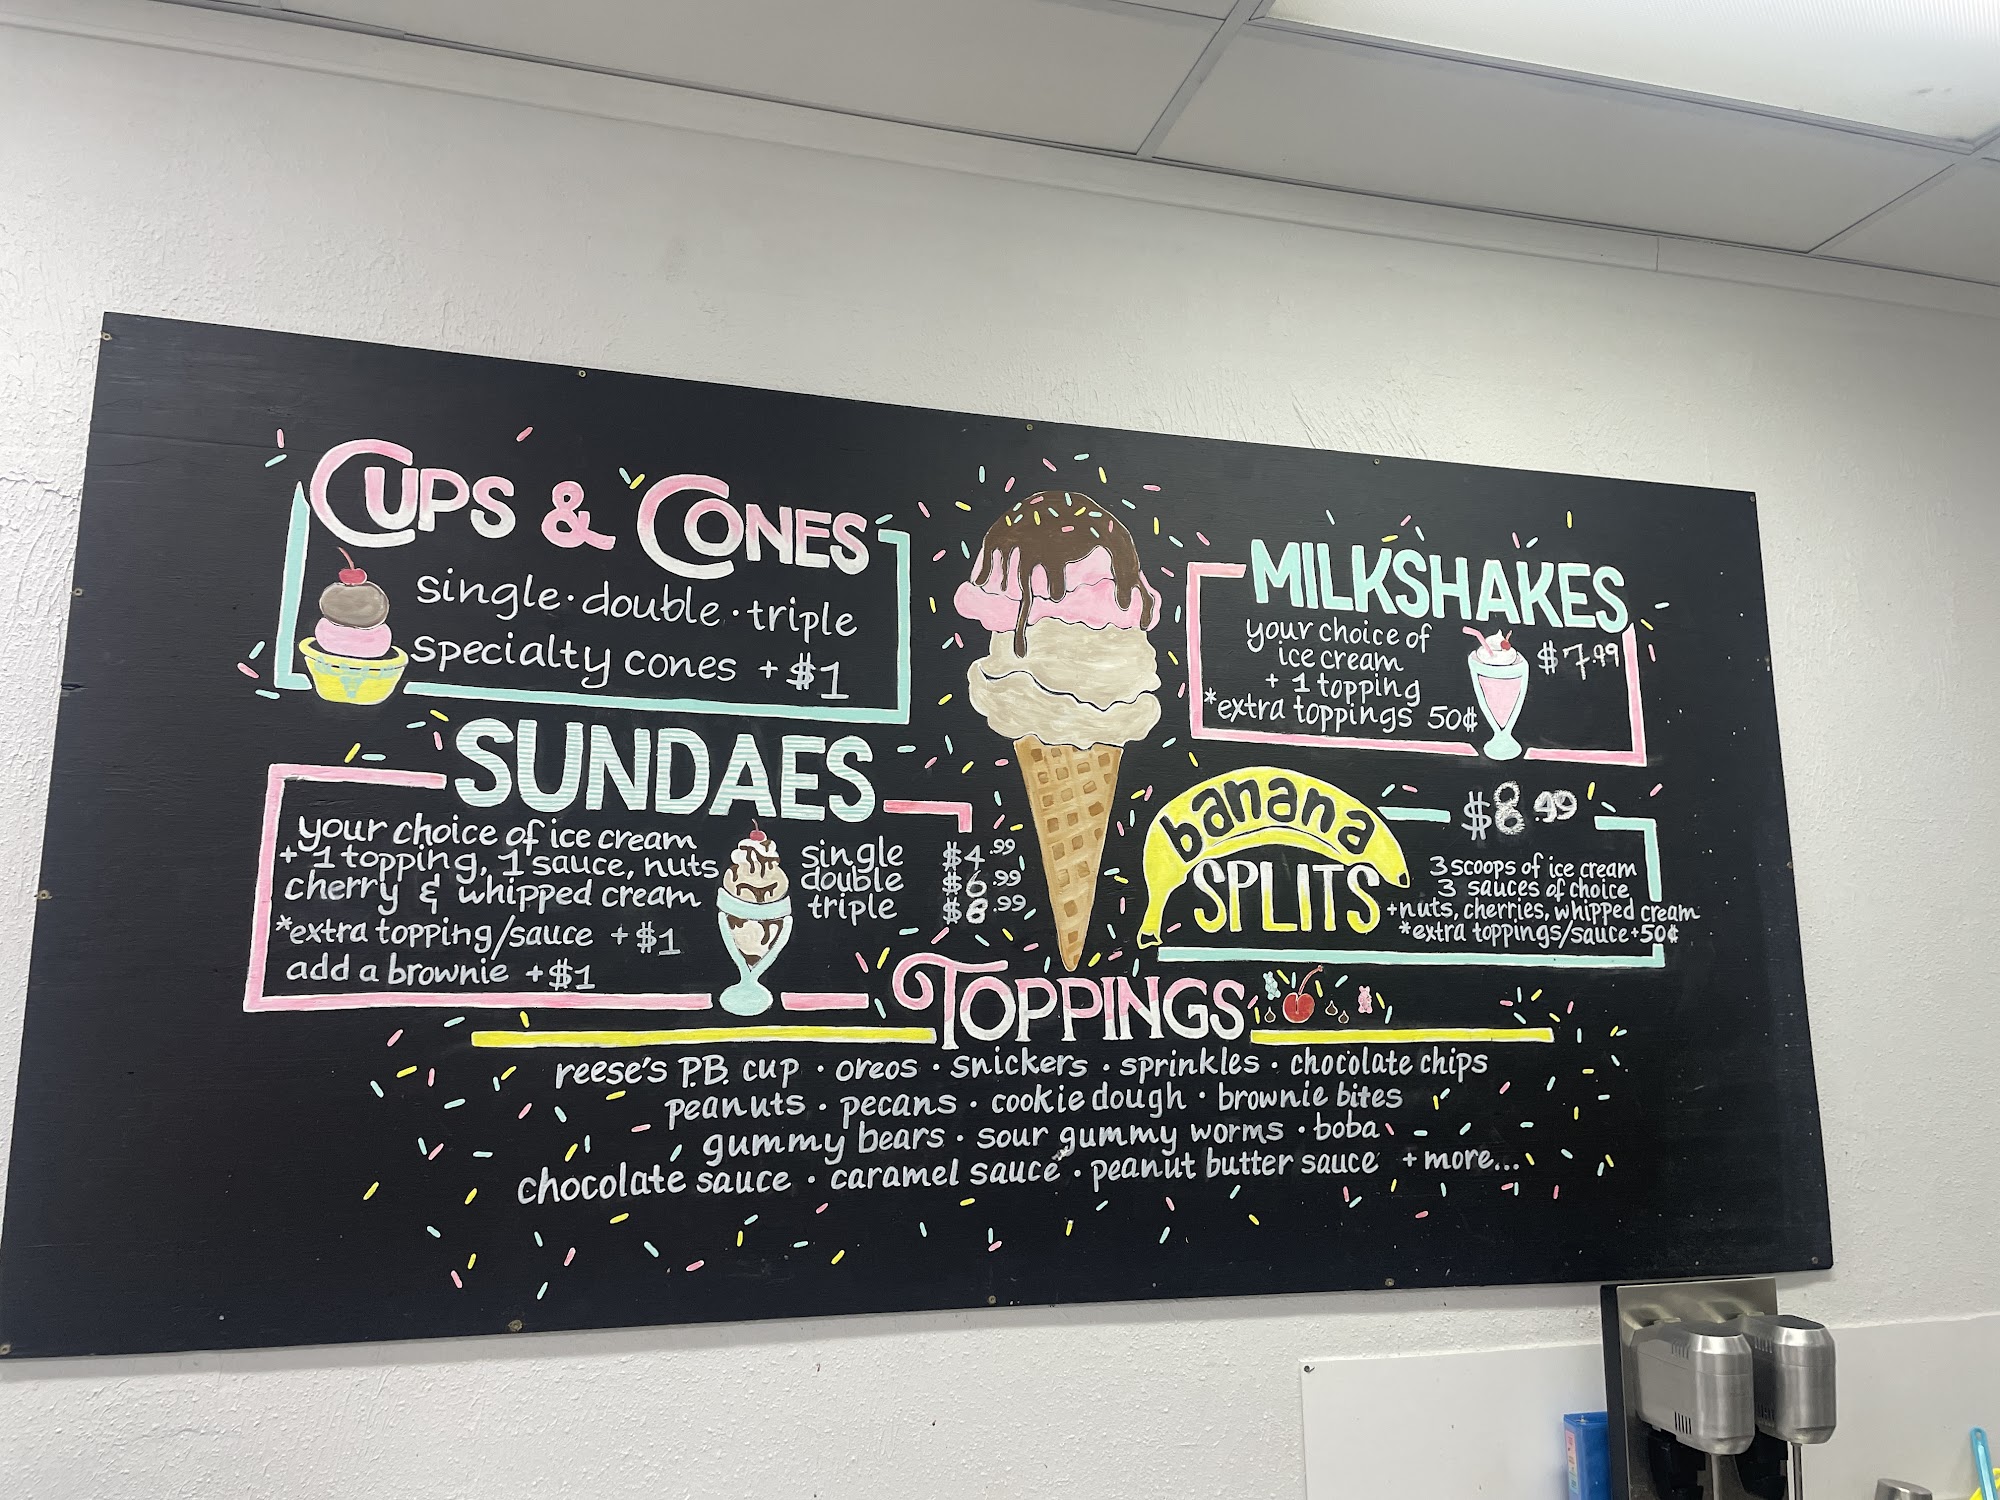 CUPS & CONES
single · double · triple
specialty cones + $1
SUNDAES
your choice of ice cream
+ 1 topping, 1 sauce, nuts
cherry & whipped cream
*extra topping/sauce + $1
add a brownie + $1
single $4.99
double $6.99
triple $8.99
MILKSHAKES
your choice of
ice cream
+ 1 topping
*extra toppings 50¢
$7.99
banana
SPLITS
$8.99
3 scoops of ice cream
3 sauces of choice
+nuts, cherries, whipped cream
*extra toppings/sauce +50¢
TOPPINGS
reese's P.B. cup · oreos · snickers · sprinkles · chocolate chips
peanuts · pecans · cookie dough · brownie bites
gummy bears · sour gummy worms · boba
chocolate sauce · caramel sauce · peanut butter sauce + more...